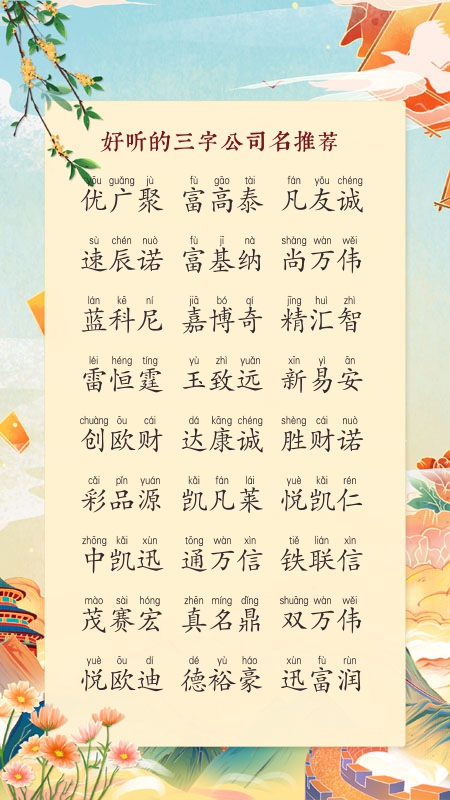 好听的三字公司名推荐
yōu guǎng jù fù gāo tài fán yǒu chéng
优广聚 富高泰 凡友诚
sù chén nuò fù jī nà shàng wàn wěi
速辰诺 富基纳 尚万伟
lán kē ní jiā bó qí jīng huì zhì
蓝科尼 嘉博奇 精汇智
léi héng tíng yù zhì yuǎn xīn yì ān
雷恒霆 玉致远 新易安
chuàng ōu cái dá kāng chéng shèng cái nuò
创欧财 达康诚 胜财诺
cǎi pǐn yuán kǎi fán lái yuè kǎi rén
彩品源 凯凡莱 悦凯仁
zhōng kǎi xùn tōng wàn xìn tiě lián xìn
中凯迅 通万信 铁联信
mào sài hóng zhēn míng dǐng shuāng wàn wěi
茂赛宏 真名鼎 双万伟
yuè ōu dí dé yù háo xùn fù rùn
悦欧迪 德裕豪 迅富润